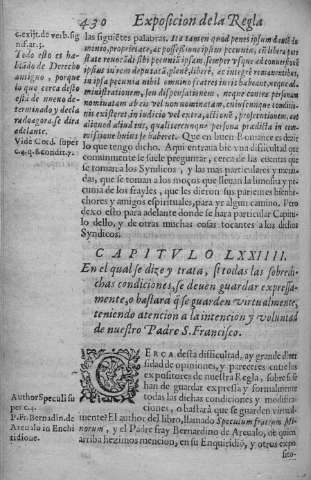 430 Exposicion de la Regla
c. exijt. de verb. sig
nif. ar. 3.
Todo esto es ha
blādo de Derecho
antigno, porque
lo que cerca desto
està de nueuo de-
terminado y decla
rado agora, se dira
adelante.
Vide Cord. super
c. 4. q.
las siguiẽtes palabras. Ita tamen quod penes ipsum
minio, proprietate, ac possessione ipsius pecunia, cũ libera
state reuocādi sibi pecuniā ipsam, semper
ipsius in rem deputatā, plenè, liberè, ac integrè remanentibus,
in ipsa pecunia nihil omnino fratres iuris habeant, neque ad-
ministrationem, seu dispensationem, neque contra personam
nominatam ab eis vel non nominatam, cuiuscunque conditio-
nis existeret, in iudicio vel extra, actionē, prosecutionem, aut
aliquod aliud ius, qualitercunque persona prædicta in com-
missione huiusmodi se haberet. Que en buen Romance es dezir
lo que tengo dicho. Aqui entraria biẽ vna dificultad que
comunmente se suele preguntar, cerca de las cuentas que
se toman a los Syndicos, y las mas particulares y menu-
das, que se toman a los moços que lleuan la limosna y pe-
cunia de los frayles, que les dieron sus parientes bienhe-
chores y amigos espirituales, para yr algun camino. Pero
dexo esto para adelante donde se hara particular Capitu-
lo dello, y de otras muchas cosas tocantes a los dichos
Syndicos.
CAPITVLO LXXIIII.
En el qual se dize y trata, si todas las sobredi-
chas condiciones, se deuen guardar expressa-
mente, o bastarà q̃ se guarden virtualmente,
teniendo atencion a la intencion y voluntad
de nuestro Padre S. Francisco.
CERCA desta dificultad, ay grande diuer
sidad de opiniones, y pareceres entre los
expositores de nuestra Regla, sobre si se
han de guardar expressa y formalmente
todas las dichas condiciones y modifica-
ciones, o bastarà que se guarden virtual-
mente? El author del libro, llamado Speculum fratrum Mi-
norum, y el Padre fray Bernardino de Areualo, de quien
arriba hezimos mencion, en su Enquiridiō, y otros expo
sito-
Author Speculi su
per c. 4.
P. Fr. Bernadin. de
Areualo in Enchi
ridione.